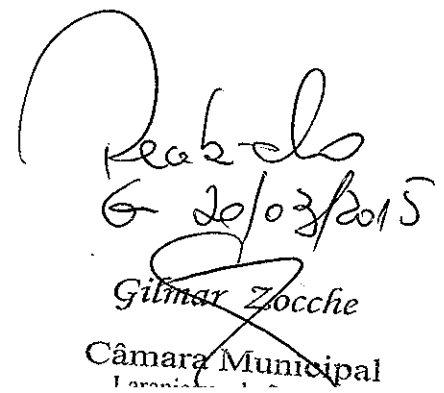 Recebido
Em 20/03/2015
Gilmar Zocche
Câmara Municipal